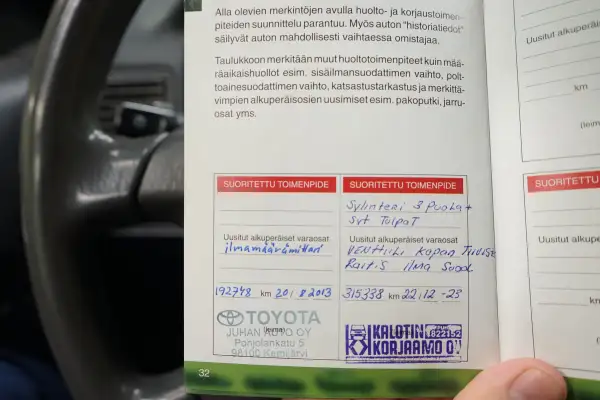 Alla olevien merkintöjen avulla huolto- ja korjaustoimen-
piteiden suunnittelu parantuu. Myös auton "historiatiedot"
säilyvät auton mahdollisesti vaihtaessa omistajaa.
Taulukkoon merkitään muut huoltotoimenpiteet kuin mää-
räaikaishuollot esim. sisäilmansuodattimen vaihto, polt-
toainesuodattimen vaihto, katsastustarkastus ja merkittä-
vimpien alkuperäisosien uusimiset esim. pakoputki, jarru-
osat yms.
SUORITETTU TOIMENPIDE
Uusitut alkuperäiset varaosat
ilmamäärämittari
192748 km 20/8 2013
TOYOTA
JUHAN AUTO OY
Pohjolankatu 5
98100 Kemijärvi
SUORITETTU TOIMENPIDE
Sylinteri 3 Puola +
Syt Tulpat
Uusitut alkuperäiset varaosat
Venttiili Kopan Tiiviste
Raitis ilma Suod
315338 km 22/12 -23
KALOTIN
KORJAAMO OY
32
Uusitut alkuperäi
km
(leim
SUORITETTU
Uusitut alkupe
km